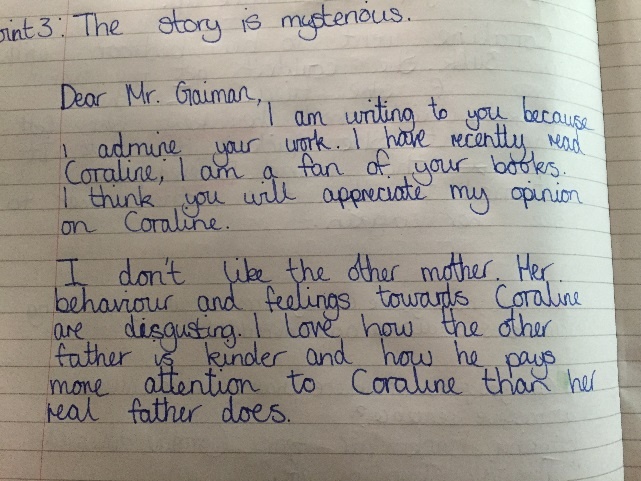 oint 3: The story is mysterious.
Dear Mr. Gaiman,
I am writing to you because
I admire your work. I have recently read
Coraline, I am a fan of your books.
I think you will appreciate my opinion
on Coraline.
I don't like the other mother. Her
behaviour and feelings towards Coraline
are disgusting. I love how the other
father is kinder and how he pays
more attention to Coraline than her
real father does.